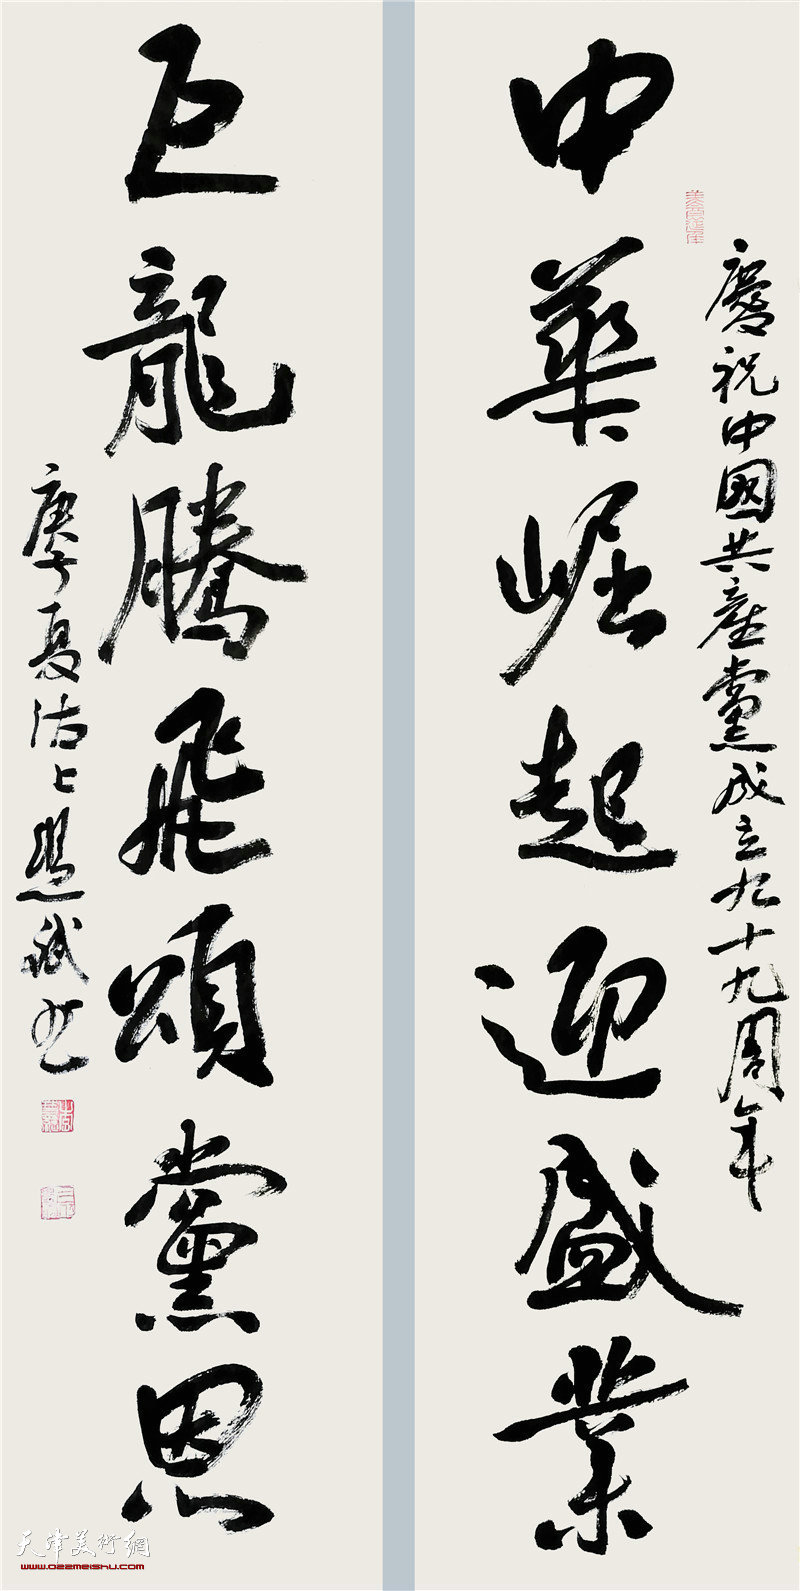 慶祝中國共產黨成立九十九周年
中華崛起迎盛業
巨龍騰飛頌黨恩
庚子夏沽上斌书
天津美术網
www.022meishu.com